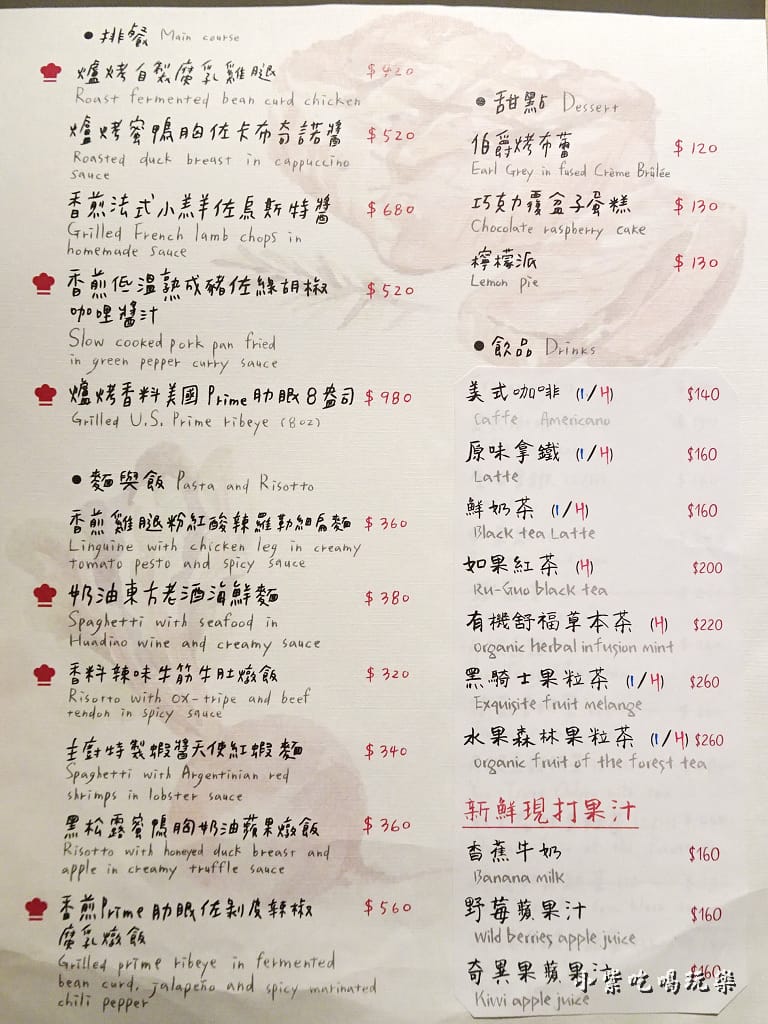 ● 排餐 Main course
爐烤自製腐乳雞腿 $420
Roast fermented bean curd chicken
爐烤蜜鴨胸佐卡布奇諾醬 $520
Roasted duck breast in cappuccino
sauce
香煎法式小羔羊佐烏斯特醬 $680
Grilled French lamb chops in
homemade sauce
香煎低溫熟成豬佐綠胡椒 $520
咖哩醬汁
Slow cooked pork pan fried
in green pepper curry sauce
爐烤香料美國Prime肋眼8盎司 $980
Grilled U.S. Prime ribeye (8oz)
● 麵與飯 Pasta and Risotto
香煎雞腿粉紅酸辣羅勒細扁麵 $360
Linguine with chicken leg in creamy
tomato pesto and spicy sauce
奶油東方老酒海鮮麵 $380
Spaghetti with seafood in
Huadiao wine and creamy sauce
香料辣味牛筋牛肚燉飯 $320
Risotto with ox-tripe and beef
tendon in spicy sauce
主廚特製蝦醬天使紅蝦麵 $340
Spaghetti with Argentinian red
shrimps in lobster sauce
黑松露蜜鴨胸奶油蘋果燉飯 $360
Risotto with honeyed duck breast and
apple in creamy truffle sauce
香煎Prime肋眼佐剝皮辣椒 $560
腐乳燉飯
Grilled prime ribeye in fermented
bean curd, jalapeño and spicy marinated
chili pepper
● 甜點 Dessert
伯爵烤布蕾 $120
Earl Grey in fused Crème Brûlée
巧克力覆盆子蛋糕 $130
Chocolate raspberry cake
檸檬派 $130
Lemon pie
● 飲品 Drinks
美式咖啡 (I/H) $140
Caffe Americano
原味拿鐵 (I/H) $160
Latte
鮮奶茶 (I/H) $160
Black tea Latte
如果紅茶 (H) $200
Ru-Guo black tea
有機舒福草本茶 (H) $220
organic herbal infusion mint
黑騎士果粒茶 (I/H) $260
Exquisite fruit melange
水果森林果粒茶 (I/H) $260
organic fruit of the forest tea
新鮮現打果汁
香蕉牛奶 $160
Banana milk
野莓蘋果汁 $160
Wild berries apple juice
奇異果蘋果汁 $160
Kiwi apple juice
小紫吃喝玩樂